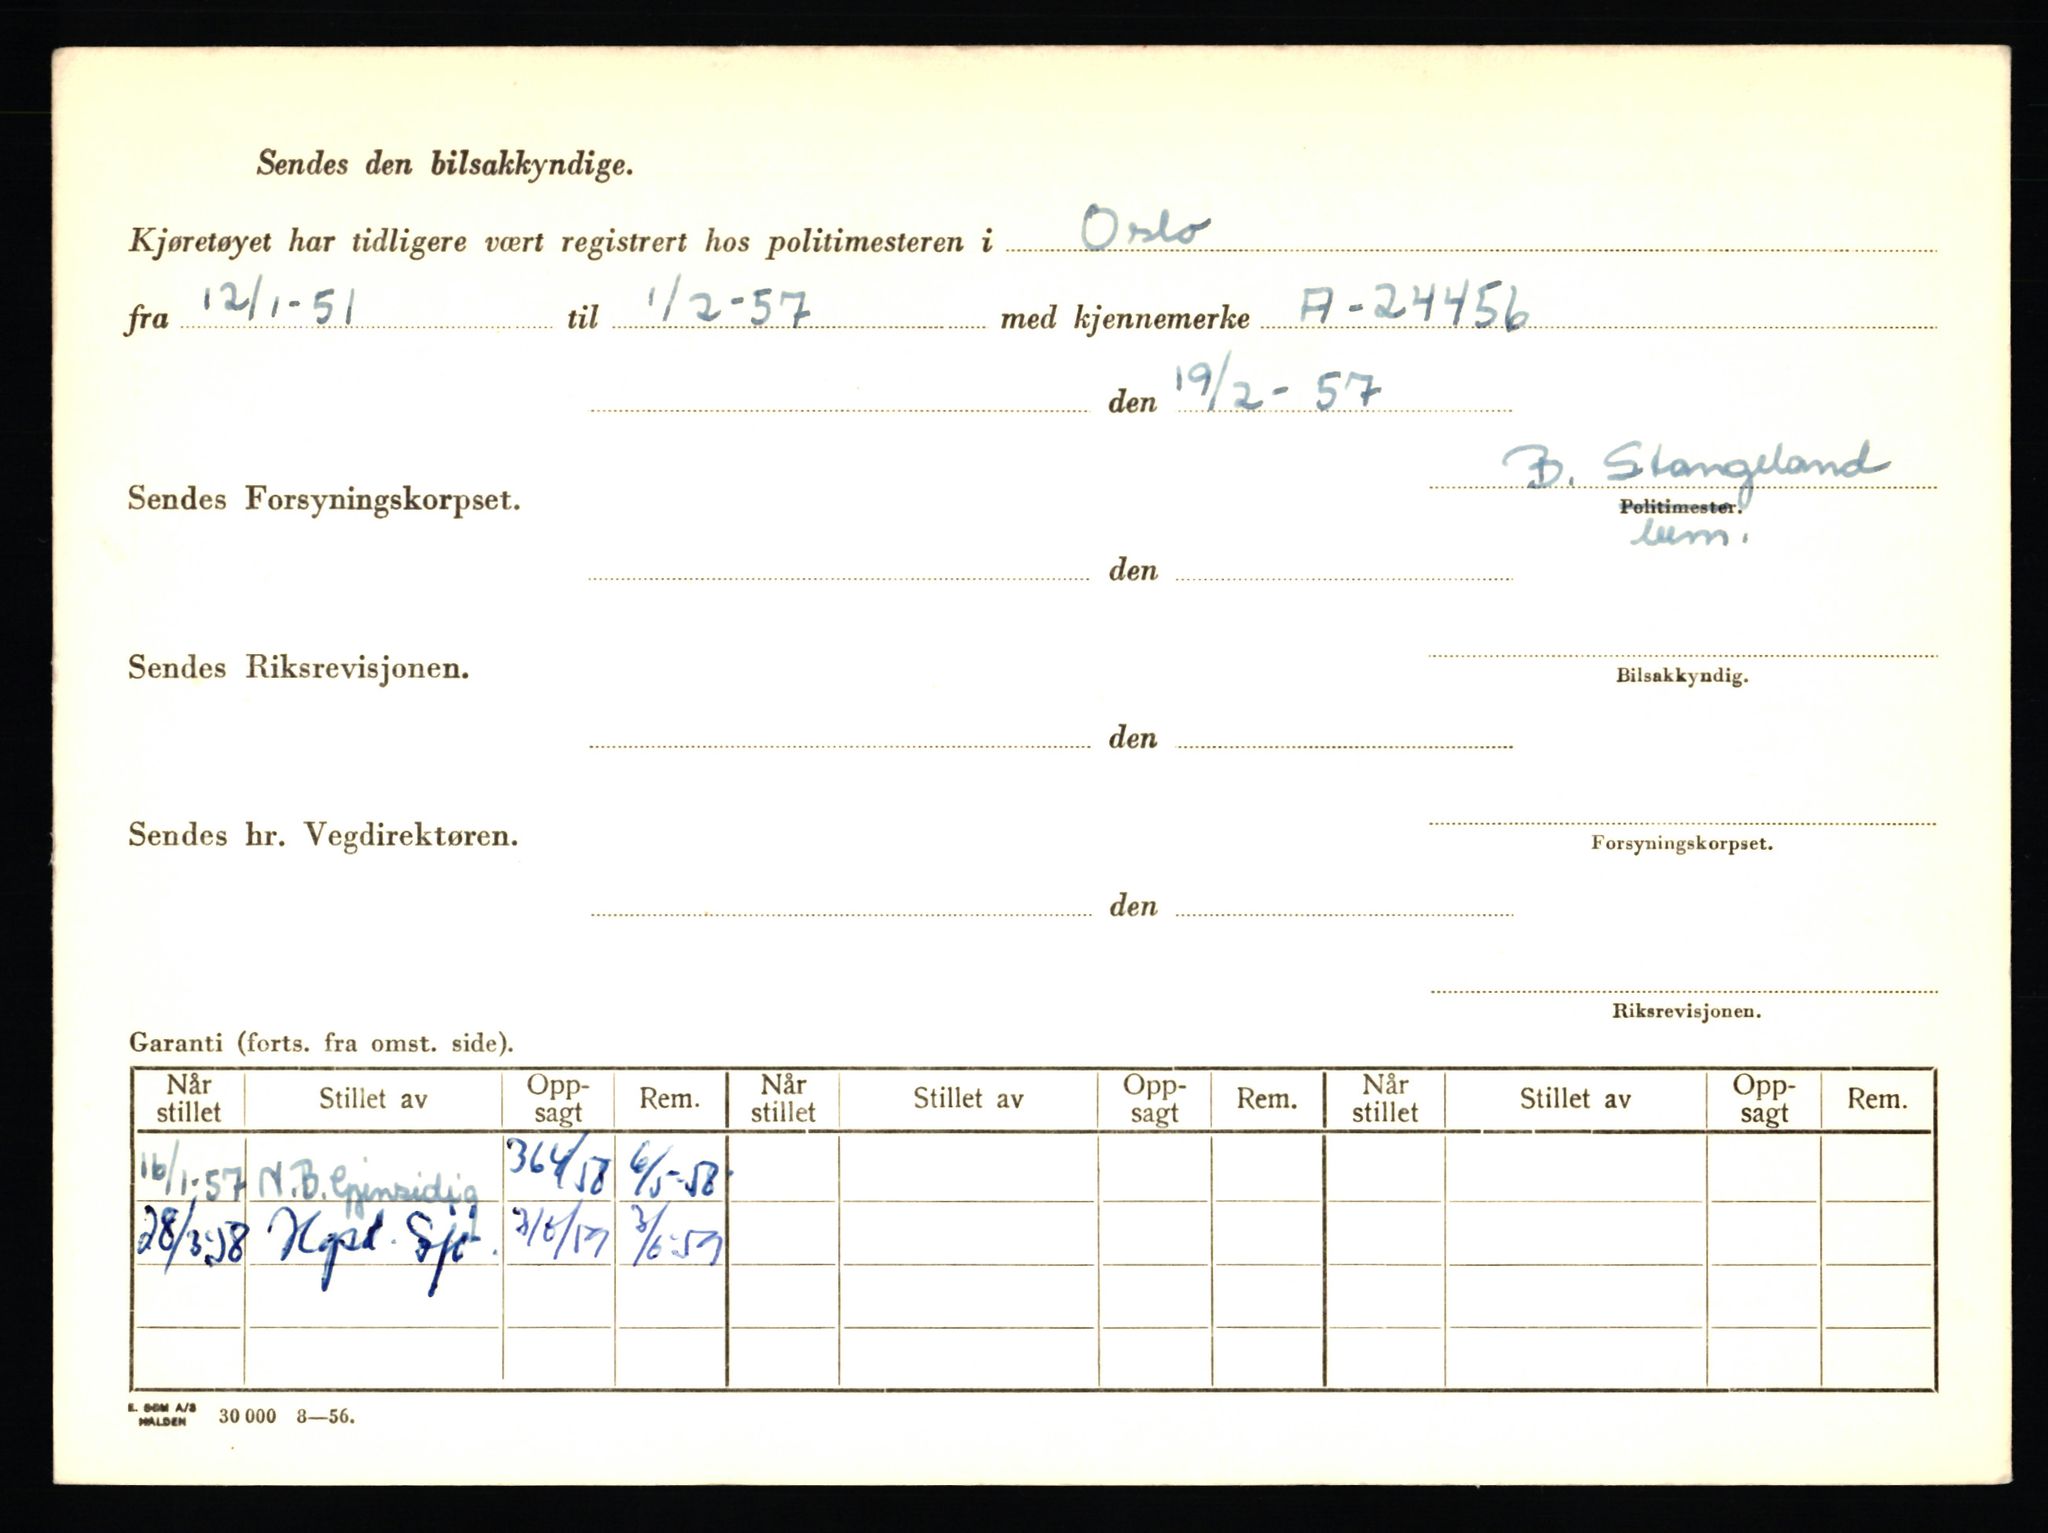 Sendes den bilsakkyndige.
Kjøretøyet har tidligere vært registrert hos politimesteren i Oslo
fra 12/1-51 til 1/2-57 med kjennemerke A-24456
den 19/2-57
B. Stangeland
Sendes Forsyningskorpset.
Politimester.
lem.
den
Sendes Riksrevisjonen.
Bilsakkyndig.
den
Sendes hr. Vegdirektøren.
Forsyningskorpset.
den
Riksrevisjonen.
Garanti (forts. fra omst. side).
Når stillet Stillet av Opp-sagt Rem. Når stillet Stillet av Opp-sagt Rem. Når stillet Stillet av Opp-sagt Rem.
16/1-57 N.B. Gjensidig 6/5-58
28/3-58
E. SEM A/S
HALDEN 30 000 8—56.